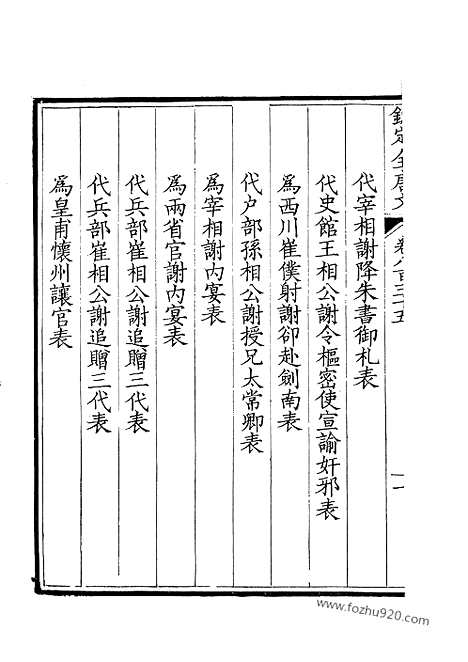 欽定全唐文
卷八百三十五
一
代宰相謝降朱書御札表
代史館王相公謝令樞密使宣諭奸邪表
爲西川崔僕射謝卻赴劍南表
代户部孫相公謝授兄太常卿表
爲宰相謝內宴表
爲兩省官謝內宴表
代兵部崔相公謝追贈三代表
代兵部崔相公謝追贈三代表
爲皇甫懷州讓官表
www.fozhu920.com